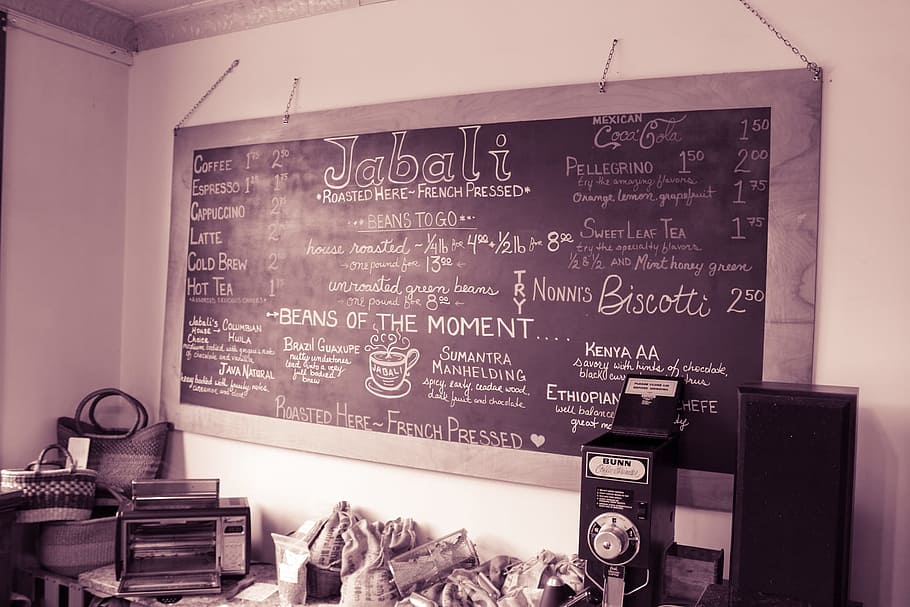 Jabali
*ROASTED HERE~FRENCH PRESSED*
COFFEE 1.75 2.50
ESPRESSO
CAPPUCCINO
LATTE
COLD BREW
HOT TEA
*ASSORTED DELICIOUS CHOICES*
BEANS TO GO
house roasted ~ 1/4 lb for 4.00 + 1/2 lb for 8.00
→ one pound for 13.00 ←
unroasted green beans
→ one pound for 8.00 ←
MEXICAN
Coca~Cola 1.50
PELLEGRINO 1.50 2.00
try the amazing flavors
Orange, lemon, grapefruit 1.75
SWEET LEAF TEA 1.75
try the specialty flavors
1/2 & 1/2 AND Mint honey green
TRY NONNI'S Biscotti 2.50
→BEANS OF THE MOMENT....
Jabali's House Choice → COLUMBIAN HUILA
medium bodied with
of chocolate and vanilla
JAVA NATURAL
heavy bodied with fruity note,
BRAZIL GUAXUPE
nutty undertones
lead into a very
full bodied
brew
JABALI
SUMANTRA
MANHELDING
spicy, early, cedar wood,
dark fruit and chocolate
KENYA AA
savory with hints of chocolate,
black
ETHIOPIAN
well balance
great
ROASTED HERE~FRENCH PRESSED ♥
BUNN